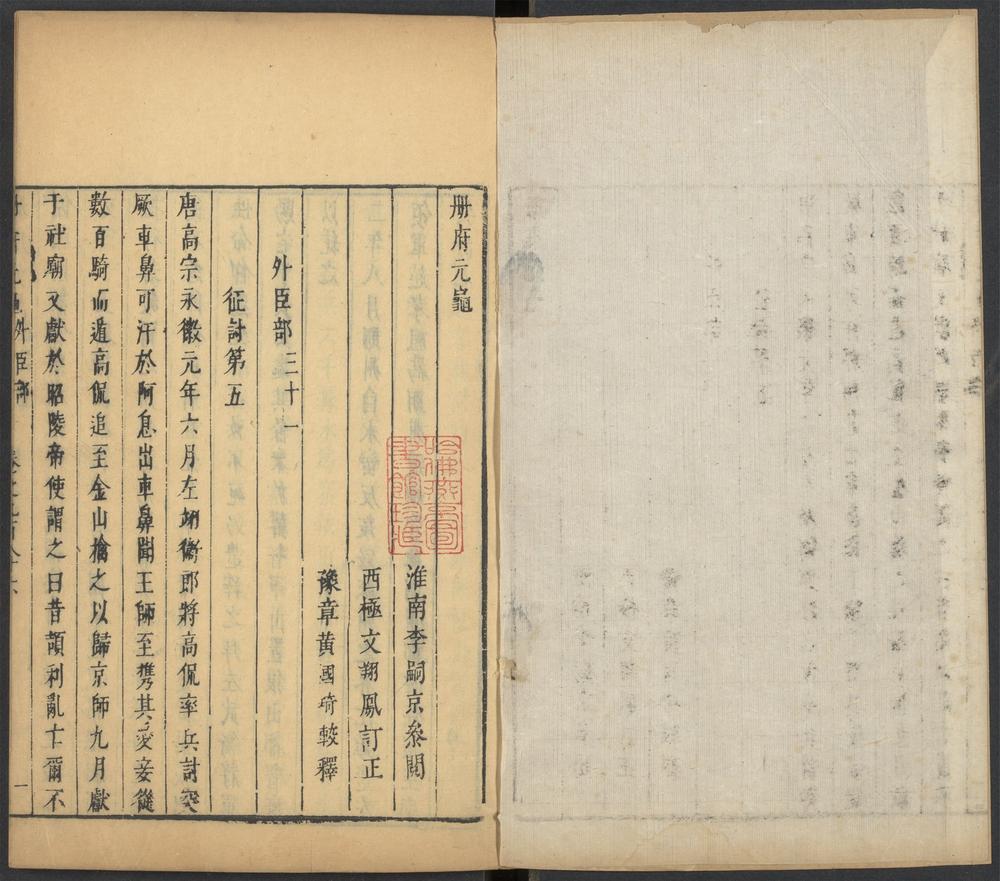 册府元龜
淮南李嗣京叅閱
西極文翔鳳訂正
豫章黃國琦較釋
外臣部三十一
征討第五
唐高宗永徽元年六月左翊衛郎將高侃率兵討突
厥車鼻可汗於阿息出車鼻聞王師至携其妻妾從
數百騎而遁高侃追至金山擒之以歸京師九月獻
于社廟又獻於昭陵帝使謂之曰昔頡利亂亡爾不
外臣部
一
哈佛燕京圖書館珍藏